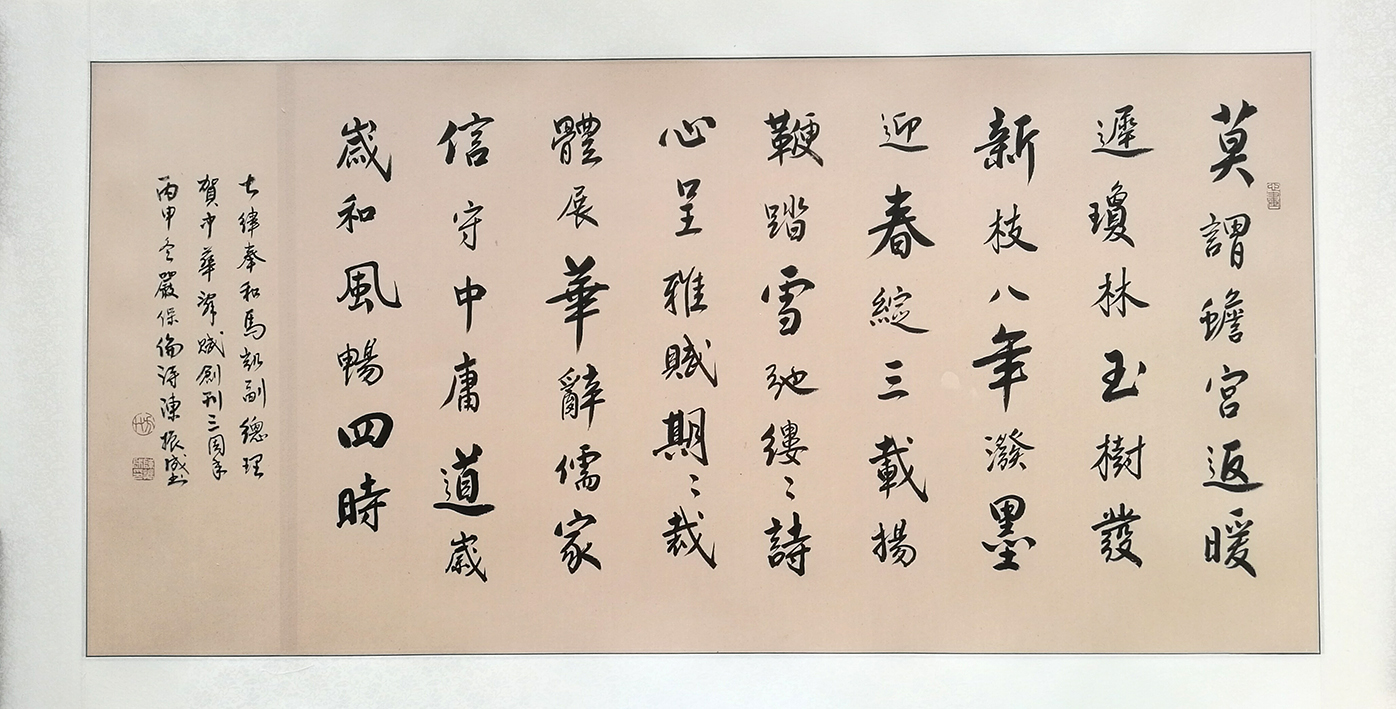 莫謂蟾宮返暖
遲瓊林玉樹發
新枝八年潑墨
迎春綻三載揚
鞭踏雪弛縷〻詩
心呈雅賦期〻裁
體展華辭儒家
信守中庸道歲
歲和風暢四時
七律奉和馬凱副總理
賀中華辭賦創刊三周年
丙申冬嚴保倫詩陳振成書